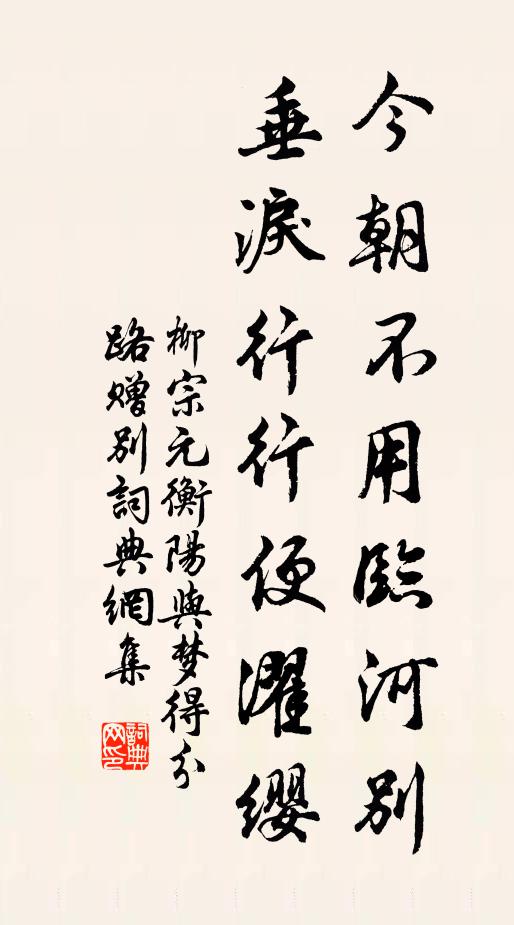 今朝不用臨河別
垂淚行行便濯缨
柳宗元衡陽與梦得分
路赠別詞典網集
詞典
网印